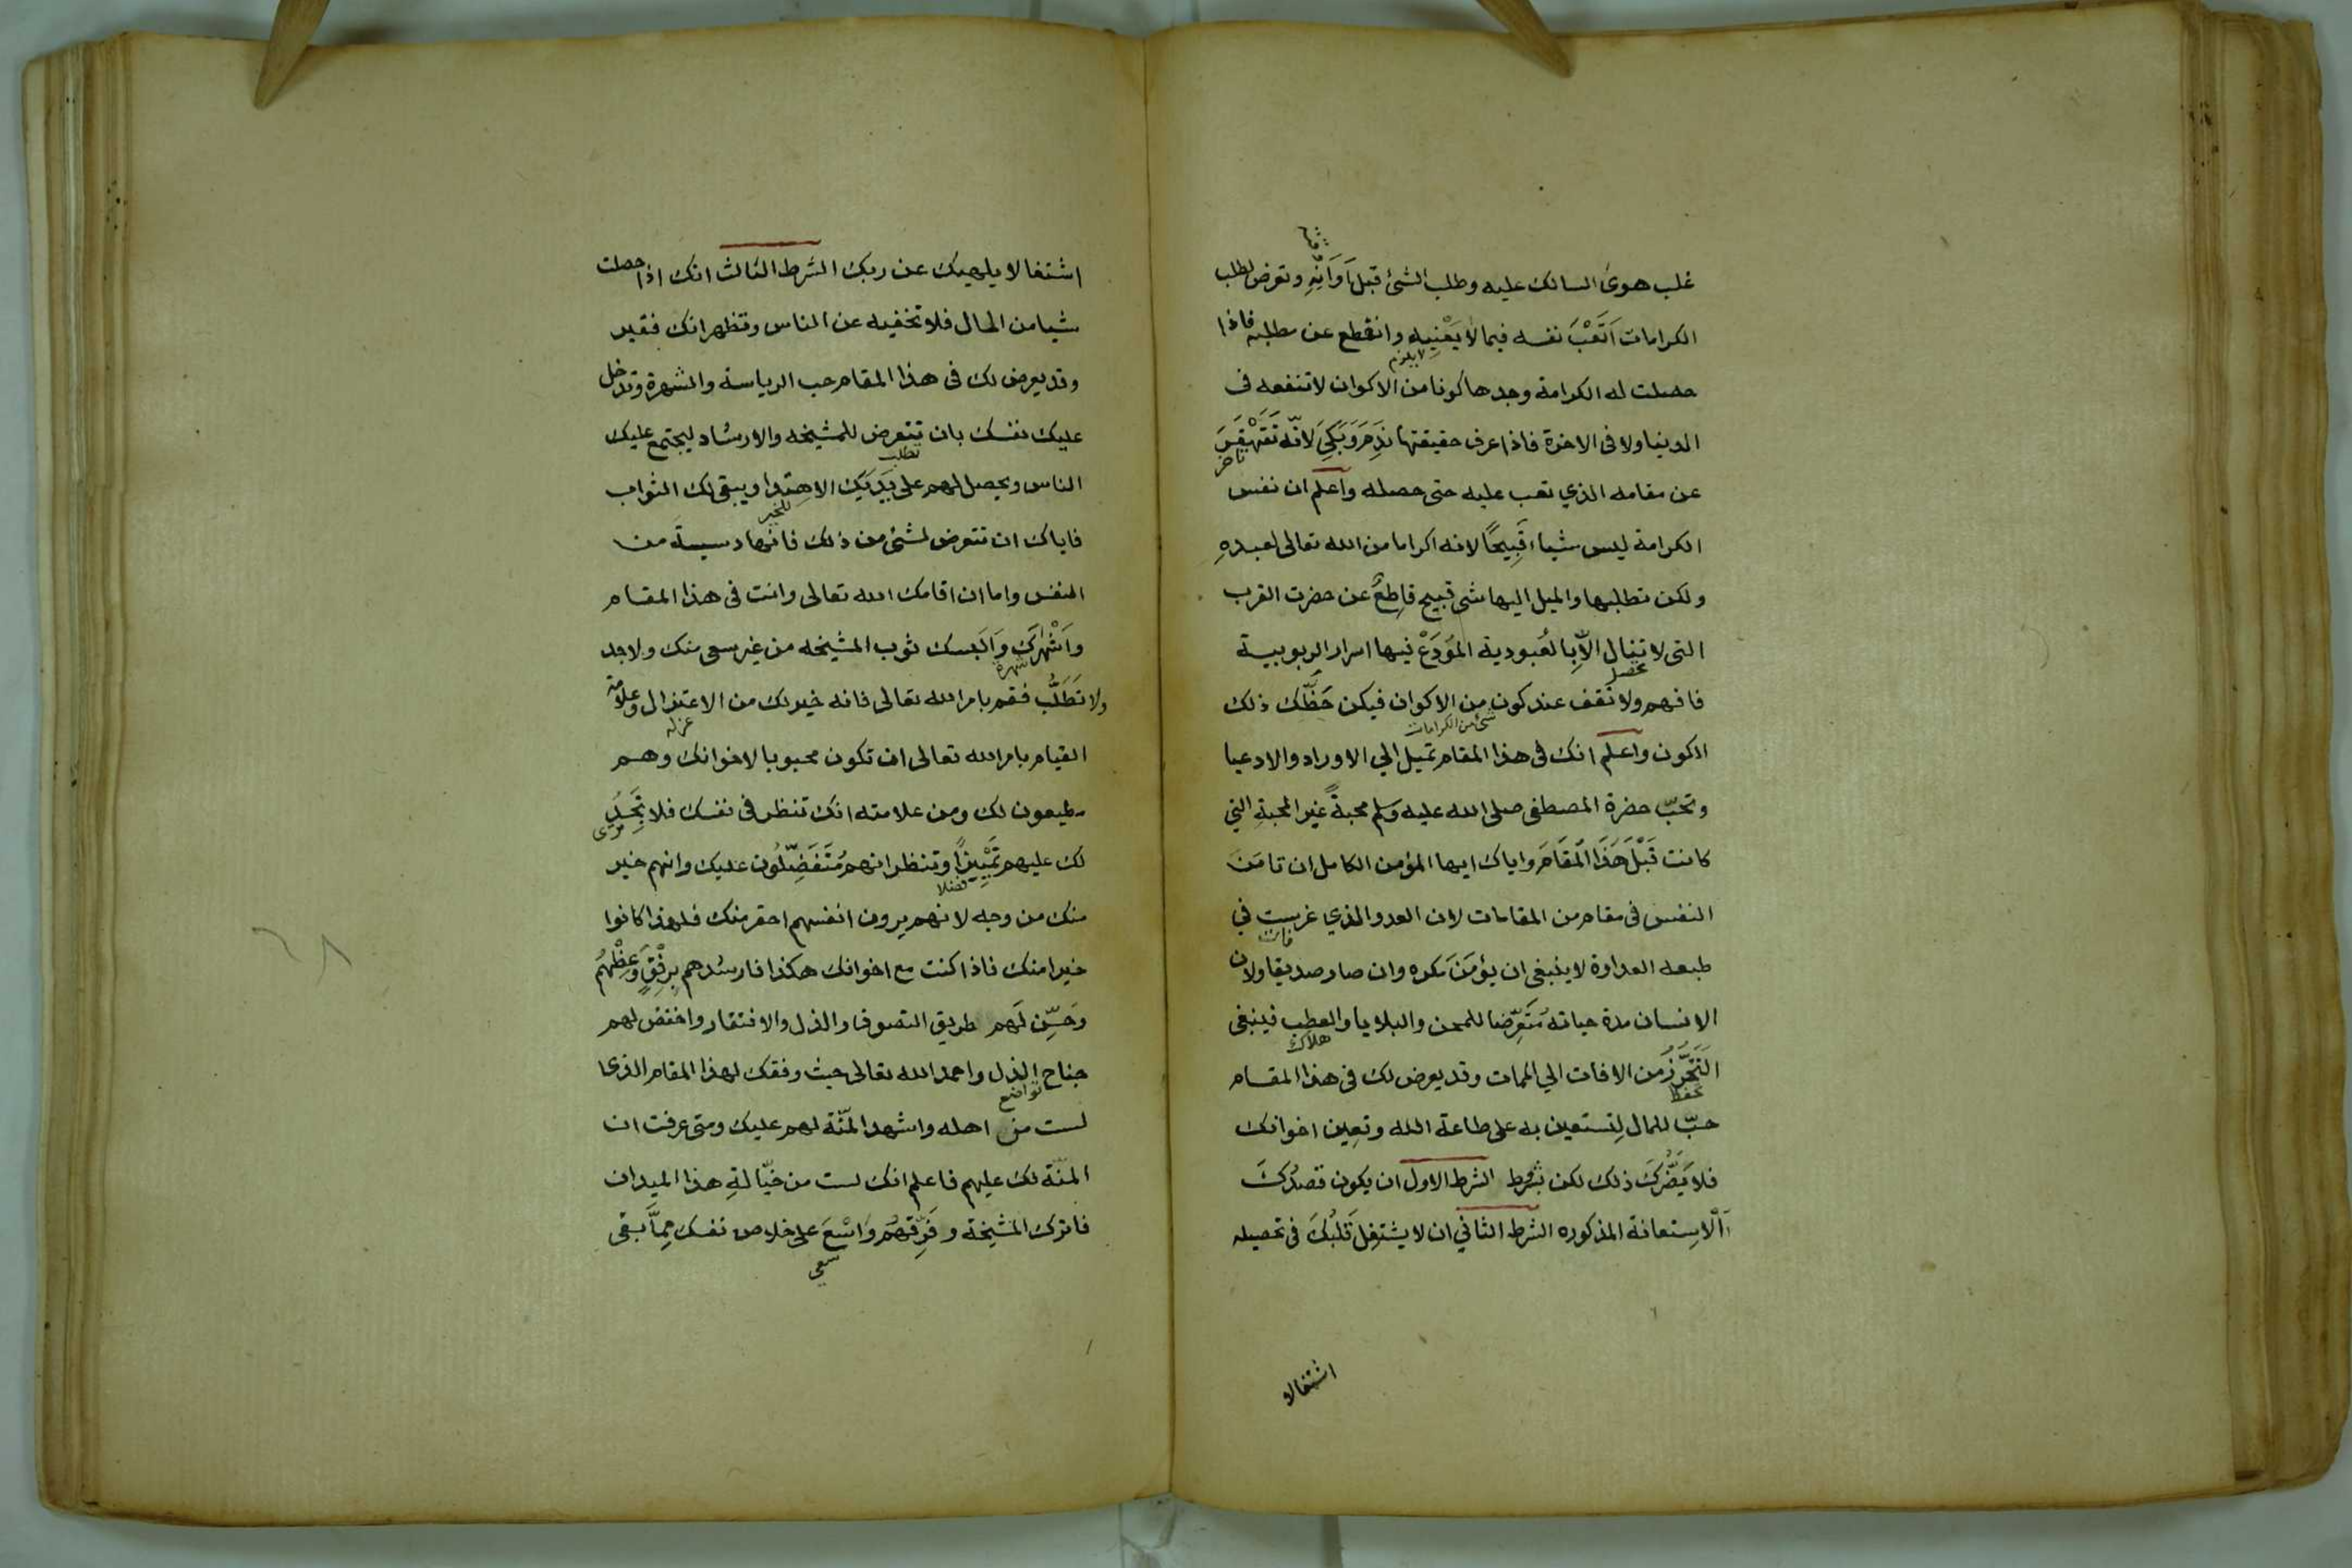 غلب هوى السالك عليه وطلب الشئ قبل اَوَانِهِ وتعرض لطلب
الكرامات اَتَعْبَ نفسه فيما لا يَعْنِيه وانقطع عن مطلبه فاذا
لا يلزم
حصلت له الكرامة وجدها كونا من الاكوان لا تنفعه فى
الدنيا ولا فى الاخرة فاذا عرف حقيقتها نَدِمَ وَبَكِيَ لانّه تَقَهْقَرَ
تاخر
عن مقامه الذي تعب عليه حتى حصله واعلم ان نفس
الكرامة ليس شياء قَبِيحًا لانه اكراما من الله تعالى لعبدهِ
ولكن تطلبها والميل اليها شى قبيح قاِطعٌ عن حضرت القرب
التى لا تنال الاّ بِالعُبودية المُوَدَعْ فيها اسرار الربوبية
تحصل
فافهم ولا تقف عند كون من الاكوان فيكن حَظّك ذلك
شئ من الكرامات
الكون واعلم انك فى هذا المقام تميل الي الاوراد والادعيا
وتحبّ حضرة المصطفى صلى الله عليه وسلم محبةً غير المحبةِ التي
كانت قَبْلَ هَذَا الْمَقَامَ واياك ايها المؤمن الكامل ان تامَنَ
النفس فى مقام من المقامات لان العدو الذي غرست في
طبعه العداوة لا ينبغى ان يؤمَنَ مكره وان صار صديقا ولان
الانسان مدة حياته مُتَعَرِّضا للمحن والبلايا والعطب فينبغى
هلاك
التَحَرُّزُ من الافات الي الممات وقد يعرض لك فى هذا المقام
تحفظ
حبّ للمال لِتستعين به على طاعة الله وتعِين اخوانك
فلا يَضُّركَ ذلك لكن بشرط الشرط الاول ان يكون قصدُكَ
اَلْاسِتعانة المذكوره الشرط الثاني ان لا يشتغِلَ قَلْبُكَ فى تحصيله
اشتغالا
اشتغالا يلهيك عن ربك الشرط الثالث انك اذا حصلت
شيا من المال فلا تخفيه عن الناس وتظهر انك فقير
وقد يعرض لك فى هذا المقام حب الرياسة والشهرة وتدخل
عليك نفسك بان تتعرض للمشيخه والارشاد ليجتمع عليك
تطلب
الناس ويحصل لهم على يَدَيْكِ الاهتدا ويبقى لك الثواب
للخير
فاياك ان تتعرض لشئ من ذلك فانها دسيسة من
النفس واما ان اقامك الله تعالى وانت فى هذا المقام
وَاَشْهَرَكَ وَاَلبَسك ثوب المشيخه من غير سعى منك ولا جد
شهرة
ولا تَطَلُّب فقم بامر الله تعالى فانه خير لك من الاعتزال وعلامة
عزله
القيام بامر الله تعالى ان تكون محبوبا لاخوانك وهم
مطيعون لك ومن علامته انك تنظر فى نفسك فلا تَجِدُ
لك عليهم تَمْيِيزًا وتنظر انهم مُتَفَضِّلُون عليك وانهم خير
تفضلا
منك من وجه لانهم يرون انفسهم احقر منك فلهذا كانوا
خيرا منك فاذا كنت مع اخوانك هكذا فارشدهم بِرِفْقٍ وَعِظْهُم
وَحَسِّن لَهم طريق التصوف والذل والافتقار واخفض لهم
جناح الذل واحمد الله تعالى حيث وفقك لهذا المقام الذى
تواضع
لست من اهله واشهد المنّة لهم عليك ومتى عرفت ان
المنّة لك عليهم فاعلم انك لست من خيّالةِ هذا الميدان
فاترك المشيخة وفَرِّقهُم وَاسْعَ على خلاص نفسك مِمَّا بقى
سعى